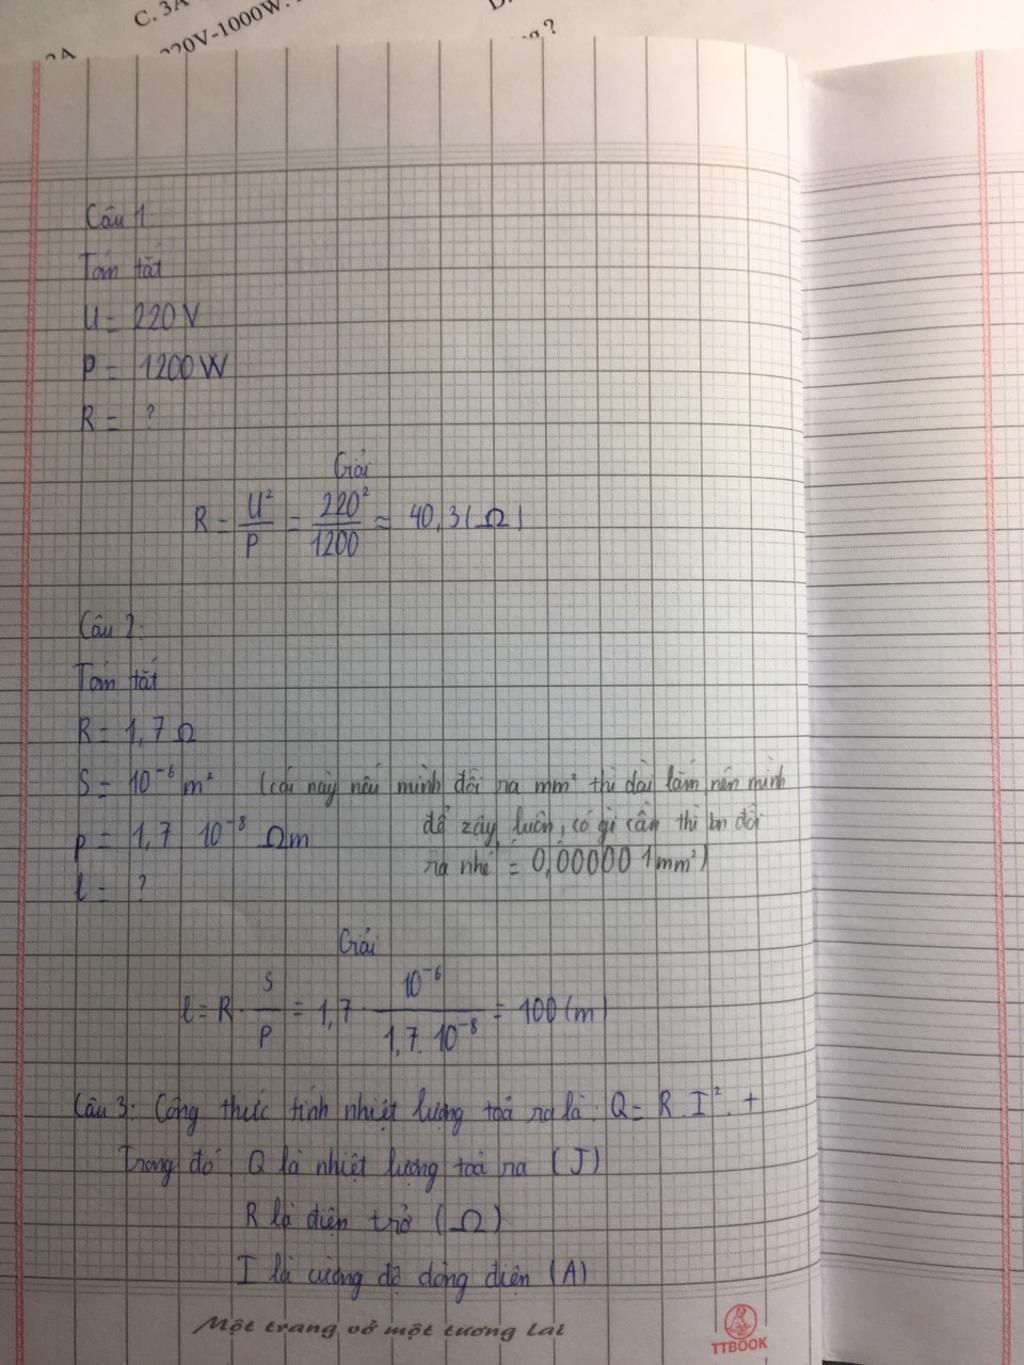 C. 3A
220V-1000W.
Câu 1
Tóm tắt
U = 220 V
P = 1200 W
R = ?
Giải
R = U²/P = 220²/1200 ≈ 40,3 (Ω)
Câu 2:
Tóm tắt
R = 1,7 Ω
S = 10⁻⁶ m² (cái này nếu mình đổi ra mm² thì dài lắm nên mình
để zậy luôn, có gì cần thì bn đổi
ρ = 1,7 10⁻⁸ Ωm
ra nhé = 0,000001mm²)
l = ?
Giải
l = R · S/ρ = 1,7 · 10⁻⁶/1,7.10⁻⁸ = 100 (m)
Câu 3: Công thức tính nhiệt lượng toả ra là: Q = R.I².t
Trong đó Q là nhiệt lượng toả ra (J)
R là điện trở (Ω)
I là cường độ dòng điện (A)
Một trang vở một tương lai
TTBOOK